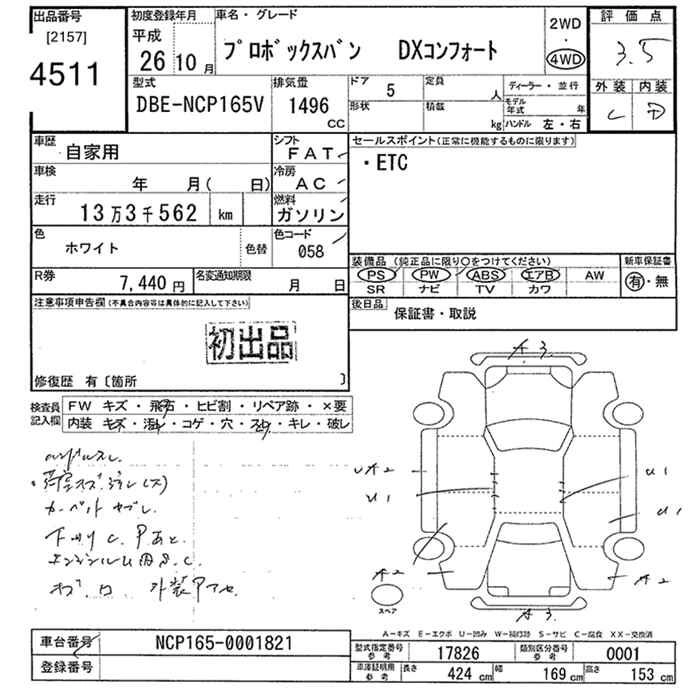 出品番号 初度登録年月 車名・グレード 2WD 評価点
[2157] 平成 ・ 3.5
4511 26 10月 プロボックスバン DXコンフォート 4WD 外装 内装
型式 排気量 ドア 5 定員 人 ディーラー・並行 C D
DBE-NCP165V 1496 CC 形状 積載 kg モデル年式 年
ハンドル 左・右
車歴 自家用 シフト FAT セールスポイント(正常に機能するものに限ります)
車検 年 月( 日) 冷房 AC ・ETC
走行 13万3千562 km 燃料 ガソリン
色 ホワイト 色替 色コード 058
装備品 (純正品に限り〇をつけてください) 新車保証書
R券 7,440円 名変通知期限 月 日 PS PW ABS エアB AW 有・無
SR ナビ TV カワ
注意事項申告欄(不具合内容等は具体的に記入して下さい) 後日品 保証書・取説
初出品
修復歴 有〔箇所 〕
検査員記入欄 FW キズ・飛石・ヒビ割・リペア跡・×要
内装 キズ・汚れ・コゲ・穴・スレ・キレ・破レ
A3
A2 U1
U1 U1
カーペットヤブレ
下廻りC.Pあと
A2 A2
スペア
A3
A−キズ E−エクボ U−凹み W−補修跡 S−サビ C−腐食 XX−交換済
車台番号 NCP165-0001821 型式指定番号 参考 17826 類別区分番号 参考 0001
登録番号 車庫証明用 参考 長さ 424 cm 幅 169 cm 高さ 153 cm